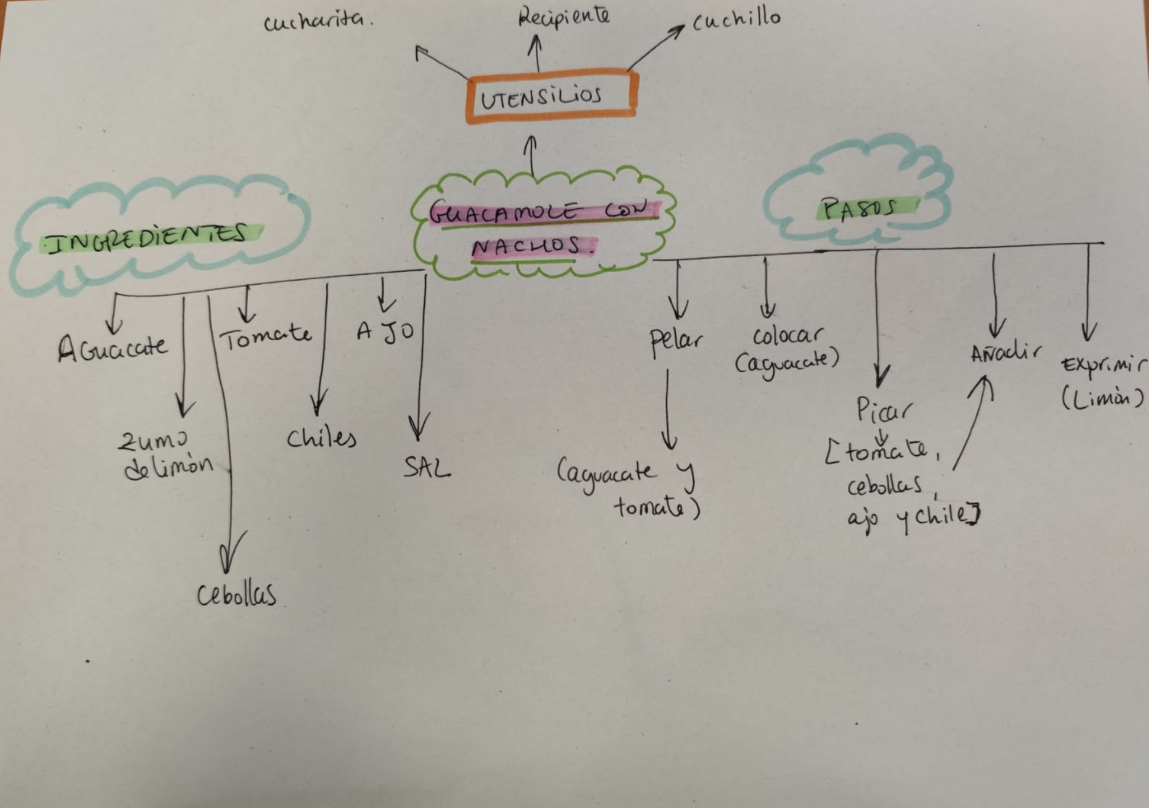 cucharita.
Recipiente
cuchillo
UTENSILIOS
GUACAMOLE CON
NACHOS.
INGREDIENTES
PASOS
Aguacate
Tomate
AJO
zumo
de limòn
chiles
SAL
cebollas
pelar
colocar
(aguacate)
Añadir
Exprimir
(Limòn)
(aguacate y
tomate)
Picar
[tomate,
cebollas,
ajo y chile]